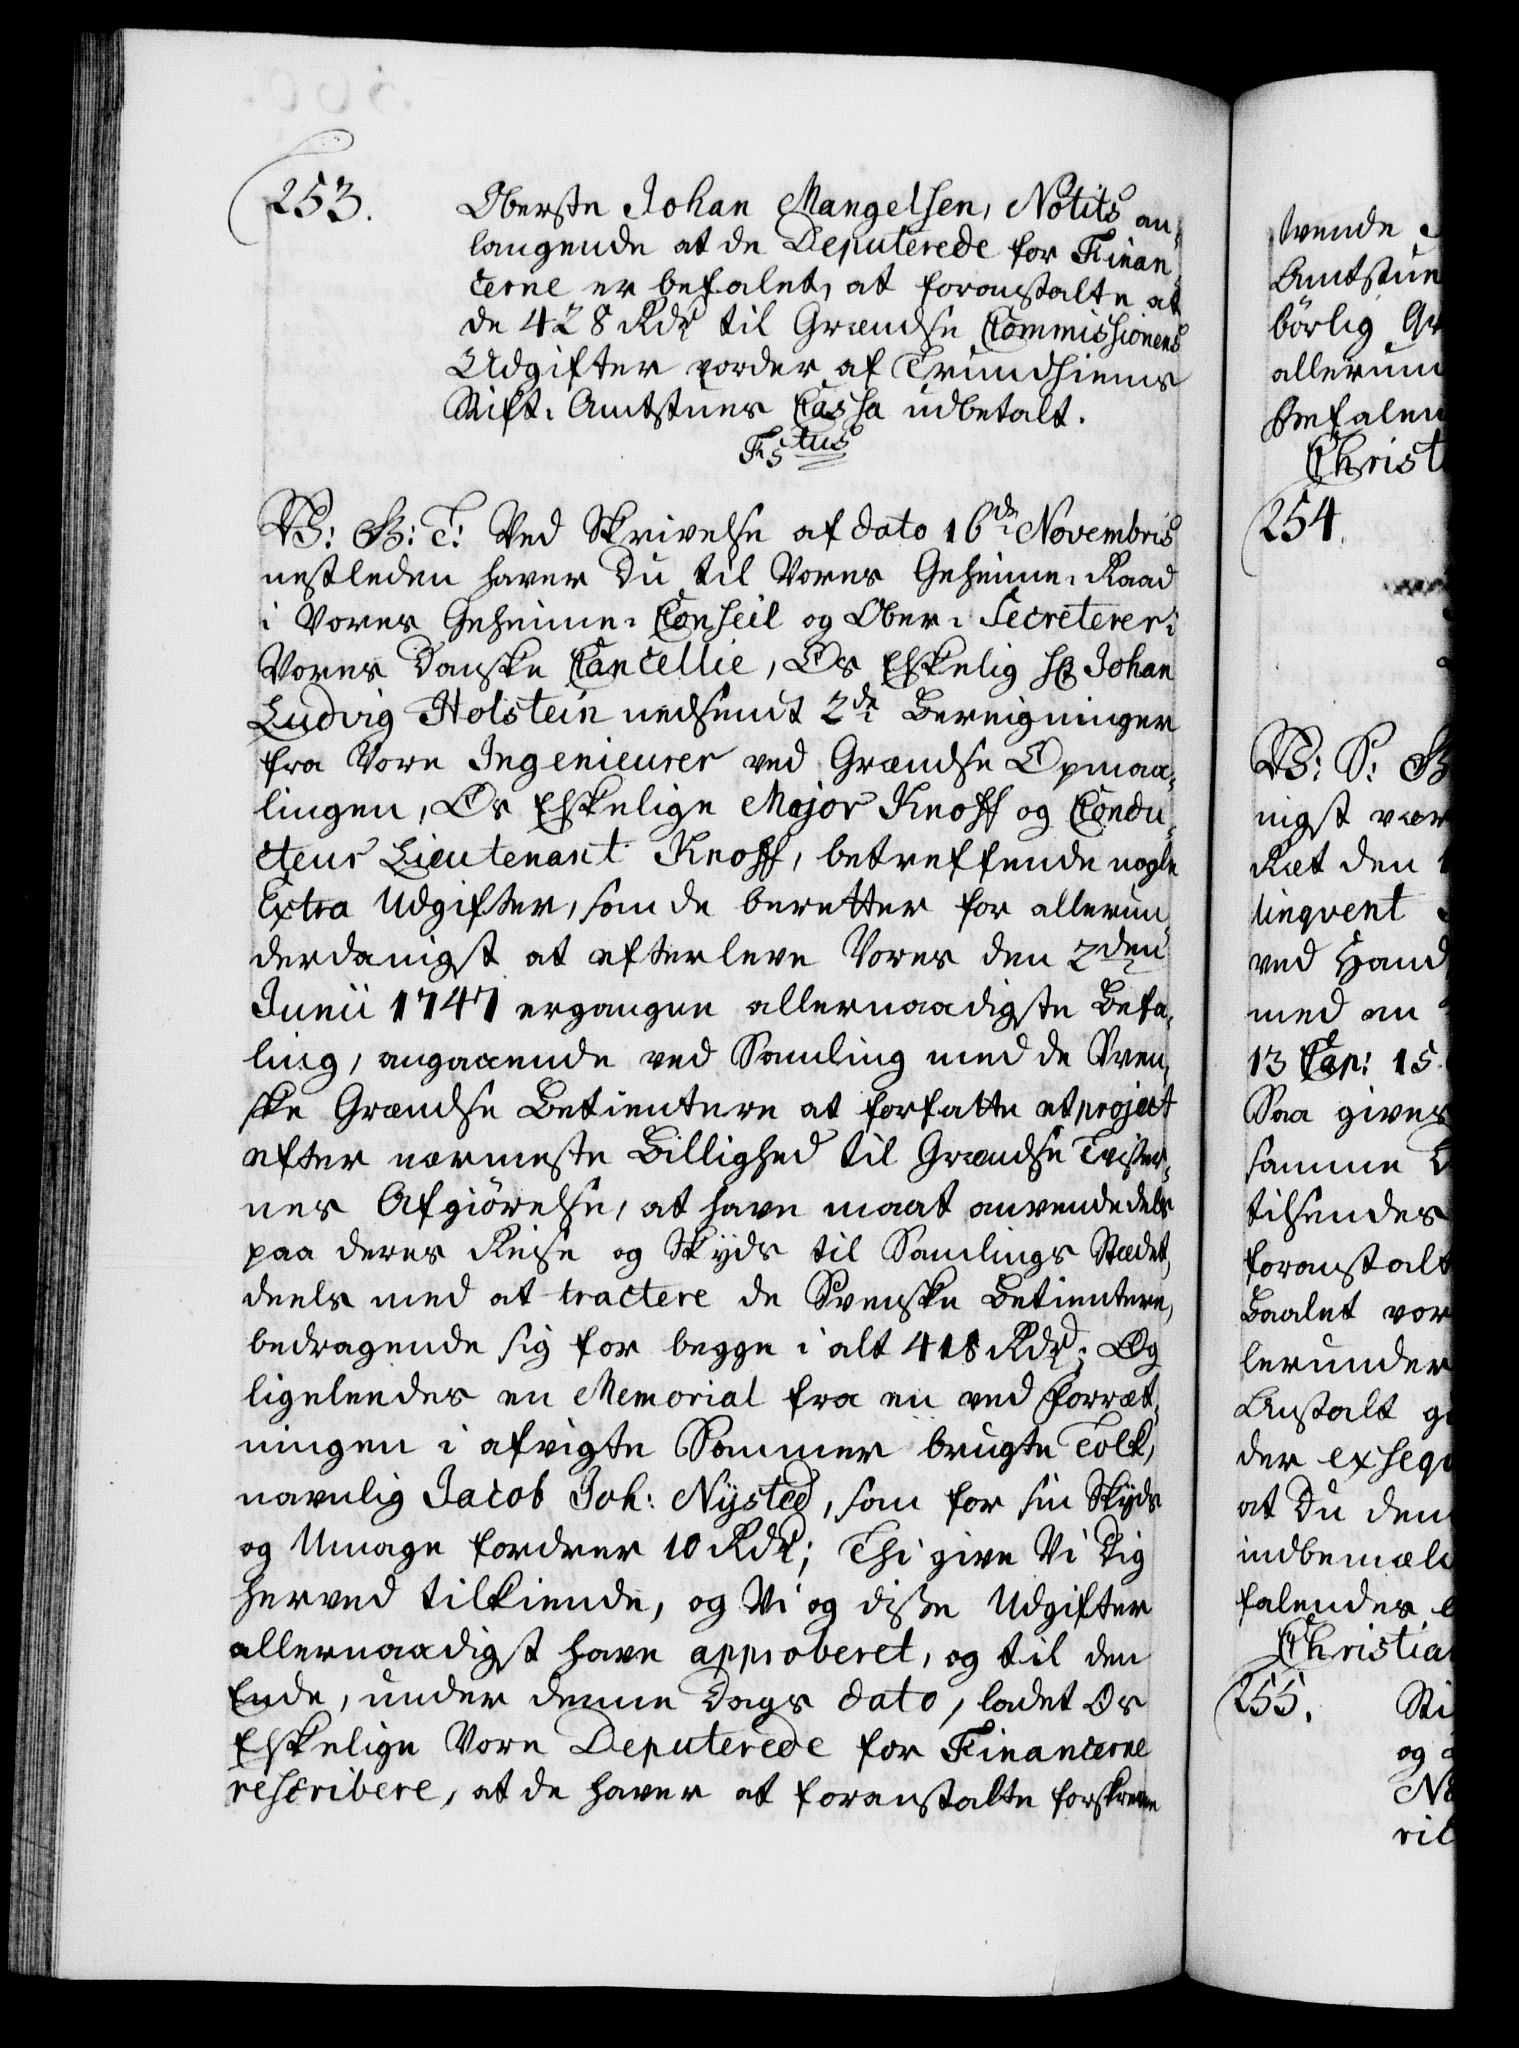 253.
Oberste Johan Mangelsen, Notits an-
langende at de Deputerede for Finan-
cerne er befalet, at foranstalte at
de 428 Rdr til Grændse Commissionens
Udgifter vorder af Trundhiems
Stift-Amtstues Cassa udbetalt.
F5tus
V: G: T: Ved Skrivelse af dato 16de Novembris
nestleden haver Du til Vores Geheime-Raad
i Vores Geheime-Conseil og Ober-Secreterer i
Vores Danske Cancellie, Os Elskelig Hr Johan
Ludvig Holstein nedsendt 2de Beregninger
fra Vore Ingenieurer ved Grændse Opmaa-
lingen, Os Elskelige Major Knoff og Condu-
cteur Lieutenant Knoff, betreffende nogle
Extra Udgifter, som de beretter for allerun-
derdanigst at efterleve Vores den 2den
Junii 1747 ergangne allernaadigste Befa-
ling, angaaende ved Samling med de Sven-
ske Grændse Betientere at forfatte et project
efter nærmeste Billighed til Grændse Tvister-
nes Afgiörelse, at have maat anvende dels
paa deres Reise og Skyds til Samlings Stædet,
deels med at tractere de Svenske Betientere,
bedragende sig for begge i alt 418 Rdr; Og
ligeleedes en Memorial fra en ved Forræt-
ningen i afvigte Sommer brugte Tolk,
navnlig Jacob Joh: Nysted, som for sin Skyds
og Umage fordrer 10 Rdr; Thi give Vi Dig
herved tilkiende, og Vi og disse Udgifter
allernaadigst have approberet, og til den
Ende, under denne Dags dato, ladet Os
Elskelige Vore Deputerede for Financerne
rescribere, at de haver at foranstalte forskrevne
tvende
Amtstue
börlig
allerun
Befalen
Christ
254.
V: S: G
nigst vær
Ret den
linqvent
ved Hand
med en
13 Cap: 15
Saa gives
samme
tilsendes
foranstalt
Baalet vor
lerunder
Anstalt g
der exseqv
at Du dem
indbemæld
falendes
Christian
255.
Sti
og
No
ril